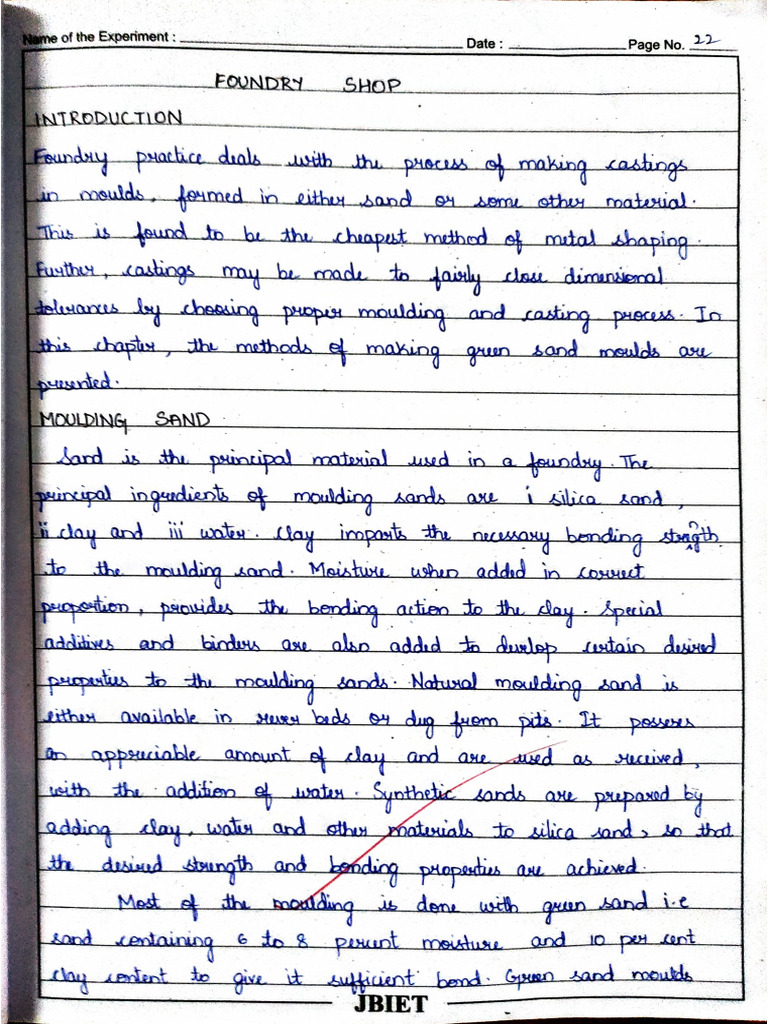 Name of the Experiment : Date : Page No. 22
FOUNDRY SHOP
INTRODUCTION
Foundry practice deals with the process of making castings
in moulds, formed in either sand or some other material.
This is found to be the cheapest method of metal shaping.
Further, castings may be made to fairly close dimensional
tolerances by choosing proper moulding and casting process. In
this chapter, the methods of making green sand moulds are
presented.
MOULDING SAND
Sand is the principal material used in a foundry. The
principal ingredients of moulding sands are i silica sand,
ii clay and iii water. Clay imparts the necessary bonding strength
to the moulding sand. Moisture when added in correct
proportion, provides the bonding action to the clay. Special
additives and binders are also added to develop certain desired
properties to the moulding sands. Natural moulding sand is
either available in rever beds or dug from pits. It posseres
an appreciable amount of clay and are used as received,
with the addition of water. Synthetic sands are prepared by
adding clay, water and other materials to silica sand, so that
the desired strength and bonding properties are achieved.
Most of the moulding is done with green sand i.e
sand containing 6 to 8 percent moisture and 10 per cent
clay content to give it sufficient bond. Green sand moulds
JBIET